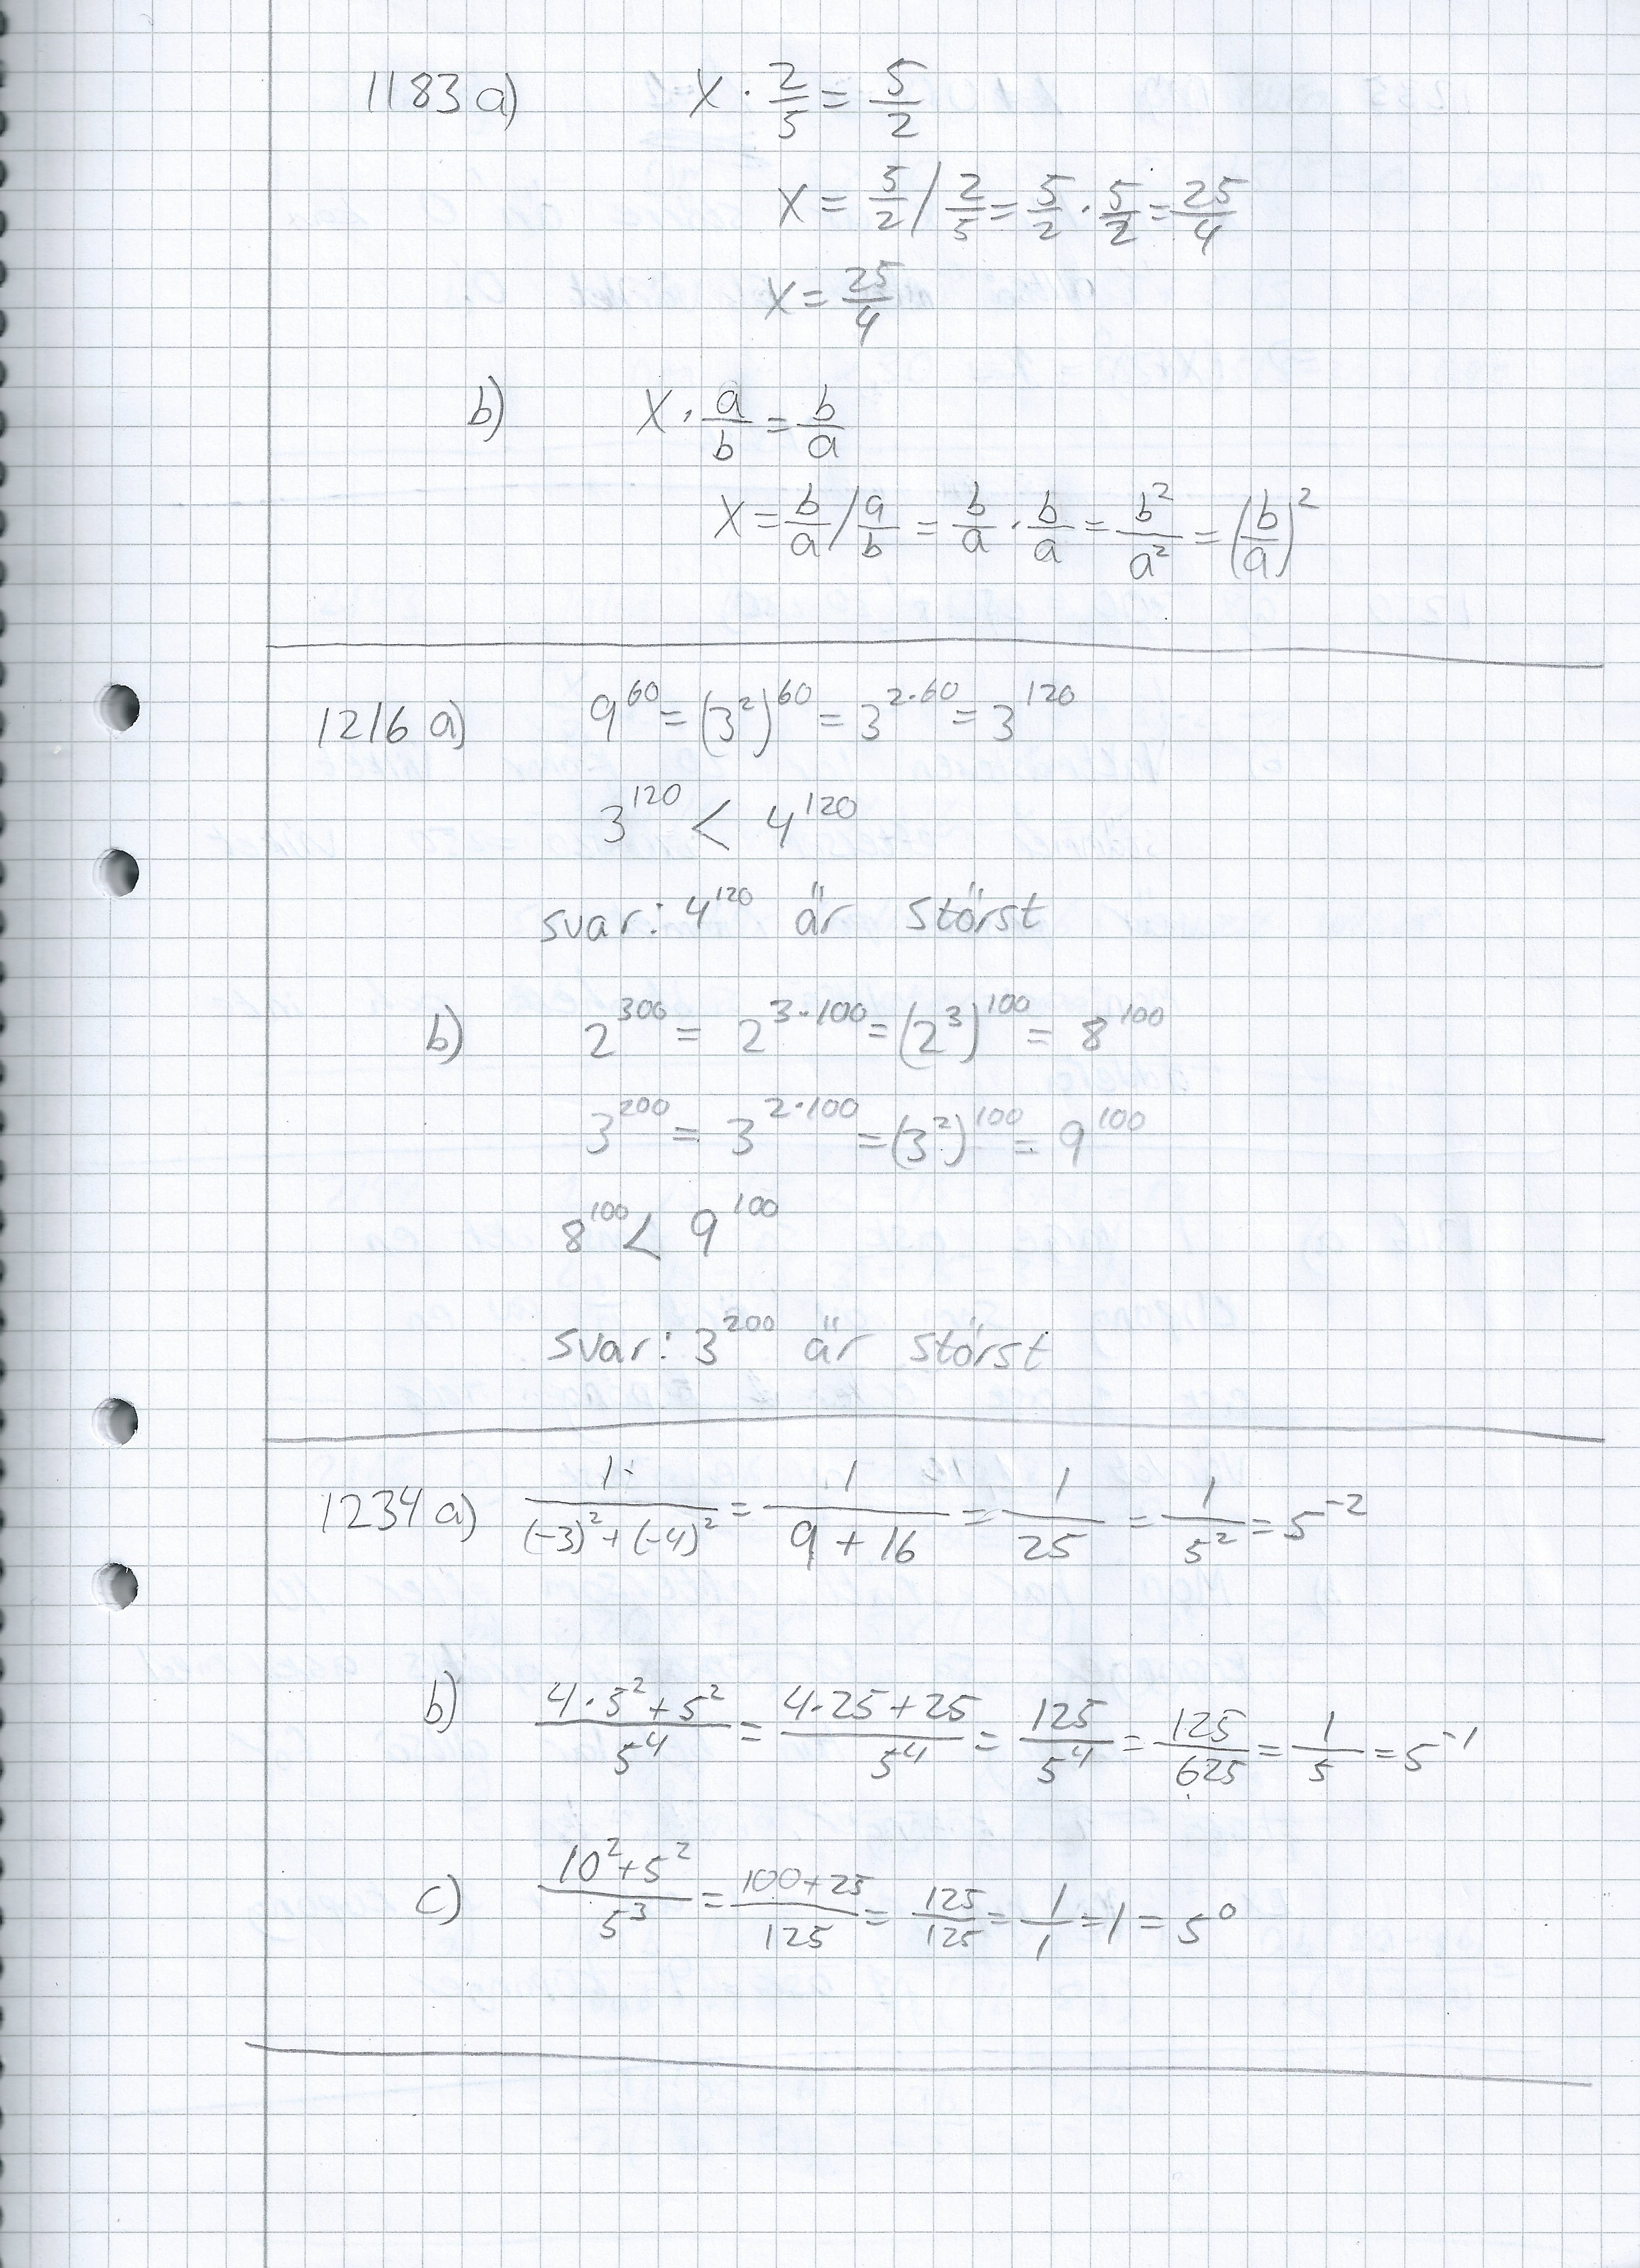 1183 a) x · 2/5 = 5/2
x = 5/2 / 2/5 = 5/2 · 5/2 = 25/4
x = 25/4
b) x · a/b = b/a
x = b/a / a/b = b/a · b/a = b²/a² = (b/a)²
1216 a) 9^60 = (3²)^60 = 3^(2·60) = 3^120
3^120 < 4^120
svar: 4^120 är störst
b) 2^300 = 2^(3·100) = (2³)^100 = 8^100
3^200 = 3^(2·100) = (3²)^100 = 9^100
8^100 < 9^100
svar: 3^200 är störst
1234 a) 1/((-3)²+(-4)²) = 1/(9+16) = 1/25 = 1/5² = 5^-2
b) (4·5²+5²)/5⁴ = (4·25+25)/5⁴ = 125/5⁴ = 125/625 = 1/5 = 5^-1
c) (10²+5²)/5³ = (100+25)/125 = 125/125 = 1/1 = 1 = 5^0